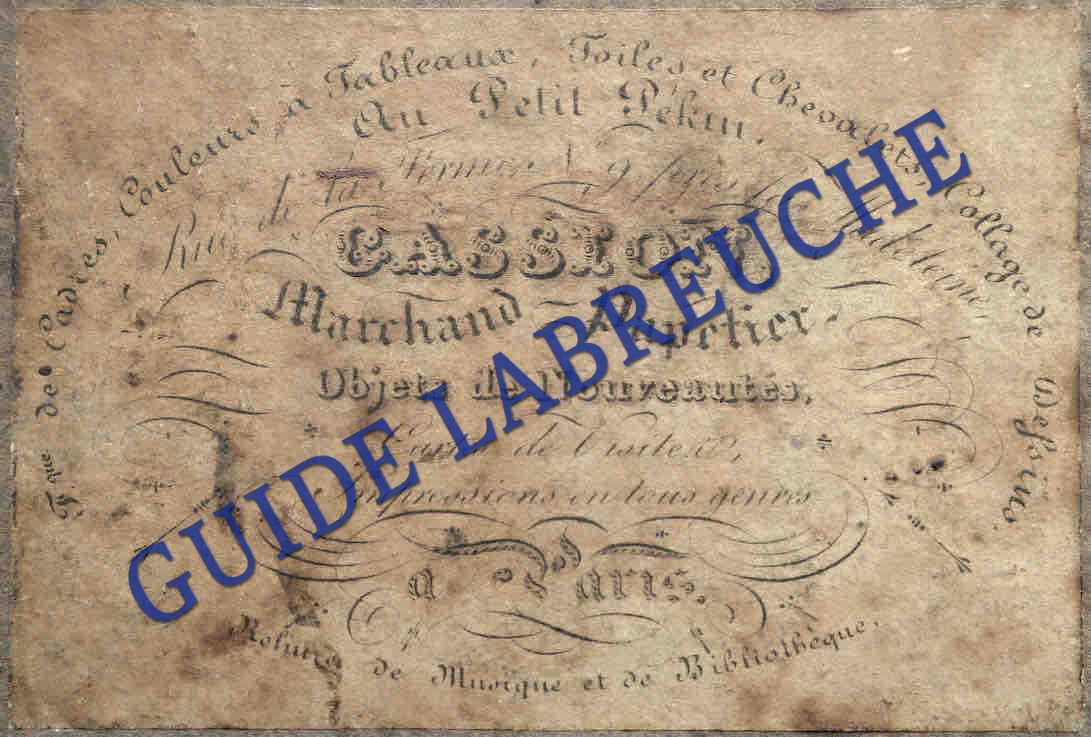 Fque de Cadres, Couleurs à Tableaux, Toiles et Chevalets, Collage de Dessins.
Au Petit Pékin.
Rue de la Ferme
CASSIOT,
Marchand Papetier.
Objets de Nouveautés,
de Visite
Impressions en tous genres
à Paris.
Reliure de Musique et de Bibliothèque.
GUIDE LABREUCHE